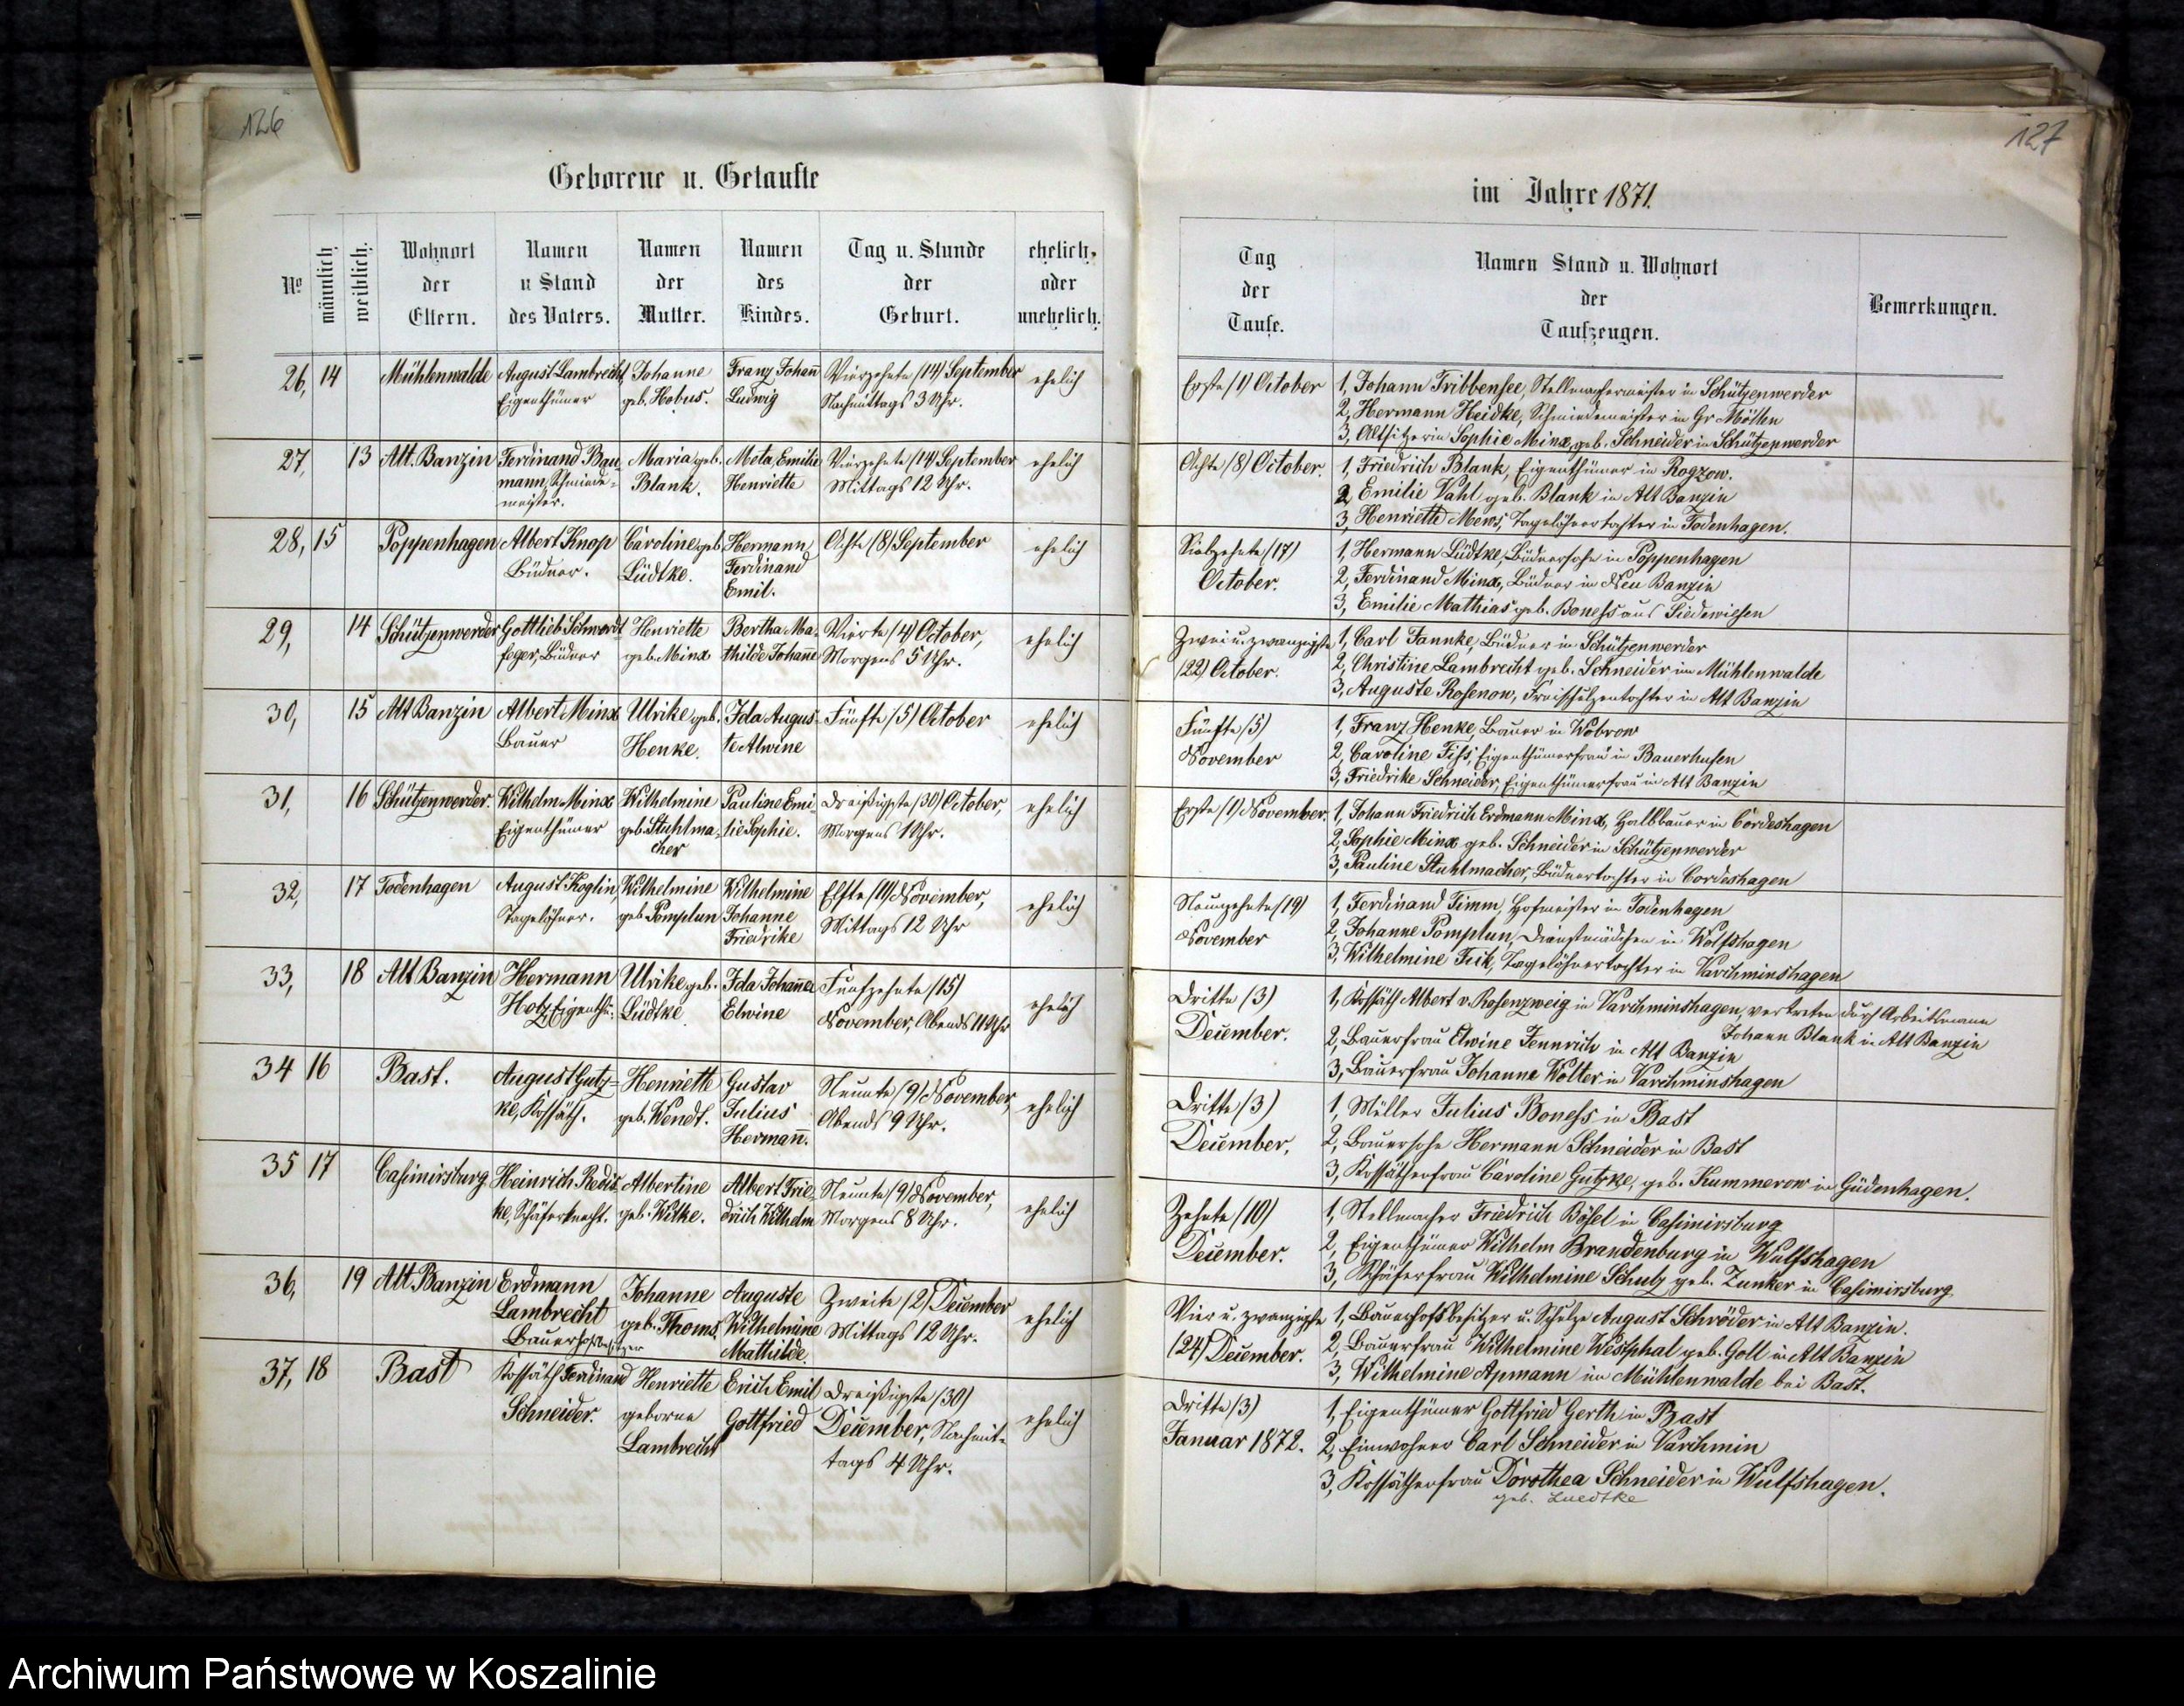 126
Geborene u. Getaufte
No
männlich
weiblich.
Wohnort
der
Eltern.
Namen
u Stand
des Vaters.
Namen
der
Mutter.
Namen
des
Kindes.
Tag u. Stunde
der
Geburt.
ehelich,
oder
unehelich.
26, 14 Mühlenwalde August Lambrecht, Johanne Franz Johann Vierzehnte (14) September ehelich
Eigenthümer geb. Hobus. Ludwig Nachmittags 3 Uhr.
27, 13 Alt. Banzin Ferdinand Bau Maria geb. Meta Emilie Vierzehnte (14) September ehelich
mann, Schmiede- Blank. Henriette Mittags 12 Uhr.
meister.
28, 15 Poppenhagen Albert Knop Caroline geb. Hermann Achte (8) September ehelich
Büdner. Lüdtke. Ferdinand
Emil.
29, 14 Schützenwerder Gottlieb Schwerdt Henriette Bertha Ma- Vierte (4) October, ehelich
feger, Büdner geb. Minx thilde Johanne Morgens 5 Uhr.
30, 15 Alt Banzin Albert Minx Ulrike geb. Ida Augus- Fünfte (5) October ehelich
Bauer Henke. te Alwine
31, 16 Schützenwerder. Wilhelm Minx Wilhelmine Pauline Emi- Dreißigste (30) October, ehelich
Eigenthümer geb. Stuhlma- lie Sophie. Morgens 1 Uhr.
cher
32, 17 Todenhagen August Koglin, Wilhelmine Wilhelmine Elfte (11) November, ehelich
Tagelöhner. geb. Pomplun Johanne Mittags 12 Uhr
Friedrike
33, 18 Alt Banzin Hermann Ulrike geb. Ida Johanne Funfzehnte (15) ehelich
Hotz, Eigenthü: Lüdtke Elwine November, Abends 11 Uhr
34 16 Bast. August Gutz= Henriette Gustav Neunte (9) November, ehelich
ke, Kossäth. geb. Wendt. Julius Abends 9 Uhr.
Hermann.
35 17 Casimirsburg Heinrich Redis Albertine Albert Frie- Neunte (9) November, ehelich
ke, Schäferknecht. geb. Witke. drich Wilhelm Morgens 8 Uhr.
36, 19 Alt. Banzin Erdmann Johanne Auguste Zweite (2) December ehelich
Lambrecht geb. Thoms. Wilhelmine Mittags 12 Uhr.
Bauerhofsbesitzer Mathilde.
37, 18 Bast Kossäth Ferdinand Henriette Erich Emil Dreißigste (30) ehelich
Schneider. geborne Gottfried December, Nachmit-
Lambrecht tags 4 Uhr.
127
im Jahre 1871.
Tag
der
Taufe.
Namen Stand u. Wohnort
der
Taufzeugen.
Bemerkungen.
Erste (1) October 1, Johann Tribbensee, Stellmachermeister in Schützenwerder
2, Hermann Heidke, Schmiedemeister in Gr Möllen
3, Altsitzerin Sophie Minx, geb. Schneider in Schützenwerder
Achte (8) October. 1, Friedrich Blank, Eigenthümer in Rogzow.
2 Emilie Vahl geb. Blank in Alt Banzin
3, Henriette Mews, Tagelöhnertochter in Todenhagen.
Siebzehnte (17) 1, Hermann Lüdtke, Büdnersohn in Poppenhagen
October. 2, Ferdinand Minx, Büdner in Neu Banzin
3, Emilie Mathias geb. Boness aus Siedewiesen
Zwei u. zwanzigste 1, Carl Tannke, Büdner in Schützenwerder
(22) October. 2, Christine Lambrecht geb. Schneider im Mühlenwalde
3, Auguste Rosenow, Freischulzentochter in Alt Banzin
Fünfte (5) 1, Franz Henke, Bauer in Wobrow
November 2, Caroline Fiss, Eigenthümerfrau in Bauerhufen
3, Friedrike Schneider, Eigenthümerfrau in Alt Banzin
Erste (1) November. 1, Johann Friedrich Erdmann Minx, Halbbauer in Cordeshagen
2, Sophie Minx geb. Schneider in Schützenwerder
3, Pauline Stuhlmacher, Büdnertochter in Cordeshagen
Neunzehnte (19) 1, Ferdinand Timm, Hofmeister in Todenhagen
November 2, Johanne Pomplun, Dienstmädchen in Wolfshagen
3, Wilhelmine Fick, Tagelöhnertochter in Varchminshagen
Dritte (3) 1, Kossäth Albert v. Rosenzweig in Varchminshagen, vertreten durch Arbeitsmann
Johann Blank in Alt Banzin
December. 2, Bauerfrau Elwine Jennrich in Alt Banzin
3, Bauerfrau Johanne Wolter in Varchminshagen
Dritte (3) 1, Müller Julius Boness in Bast
December, 2, Bauersohn Hermann Schneider in Bast
3, Kossäthenfrau Caroline Gutzke, geb. Kummerow in Güdenhagen.
Zehnte (10) 1, Stellmacher Friedrich Bösel in Casimirsburg
December. 2, Eigenthümer Wilhelm Brandenburg in Wulfshagen
3, Schäferfrau Wilhelmine Schulz geb. Zunker in Casimirsburg
Vier u. zwanzigste 1, Bauerhofsbesitzer u. Schulze August Schröder in Alt Banzin.
(24) December. 2, Bauerfrau Wilhelmine Westphal geb. Goll in Alt Banzin
3, Wilhelmine Apmann im Mühlenwalde bei Bast.
Dritte (3) 1, Eigenthümer Gottfried Gerth in Bast
Januar 1872. 2, Einwohner Carl Schneider in Varchmin
3, Kossäthenfrau Dorothea Schneider in Wulfshagen.
geb. Luedtke
Archiwum Państwowe w Koszalinie